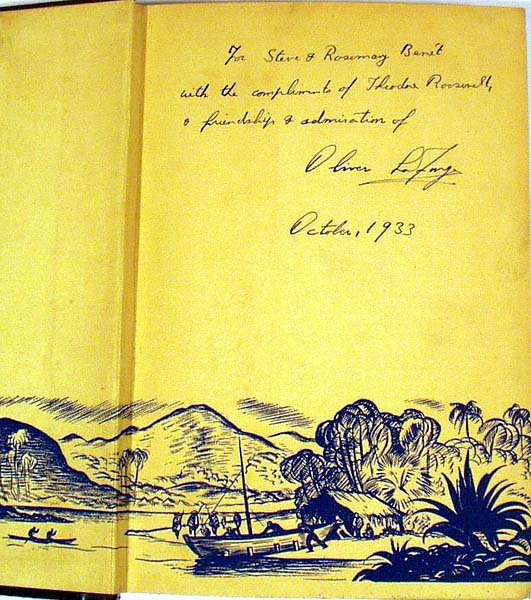 For Steve & Rosemary Benét
with the compliments of Theodore Roosevelt,
& friendship & admiration of
Oliver La Farge
October, 1933